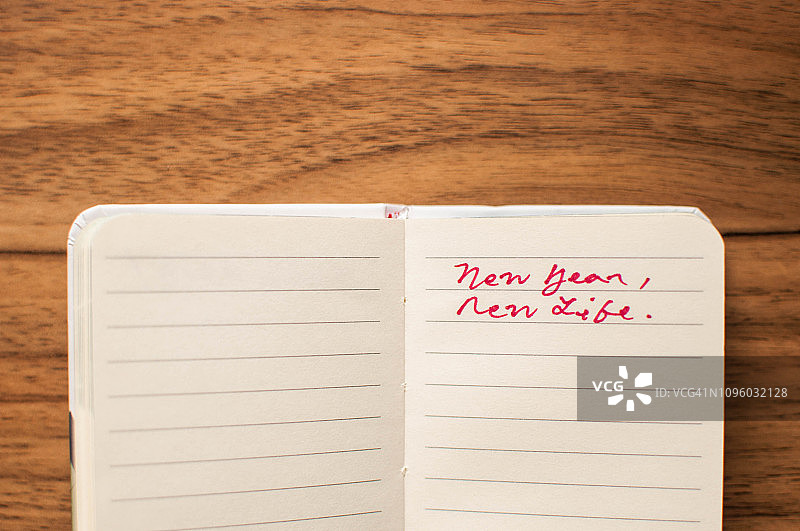 New Year,
New Life.
VCG
ID: VCG41N1096032128